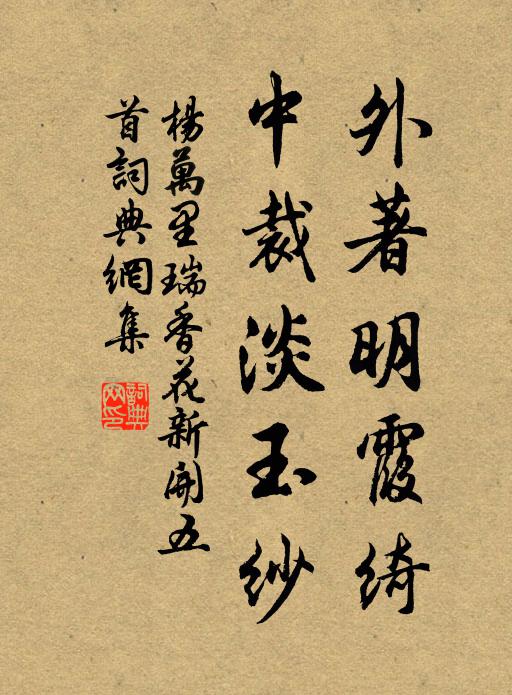 外著明霞綺
中裁淡玉紗
楊萬里瑞香花新開五
首詞典網集
詞典
网印